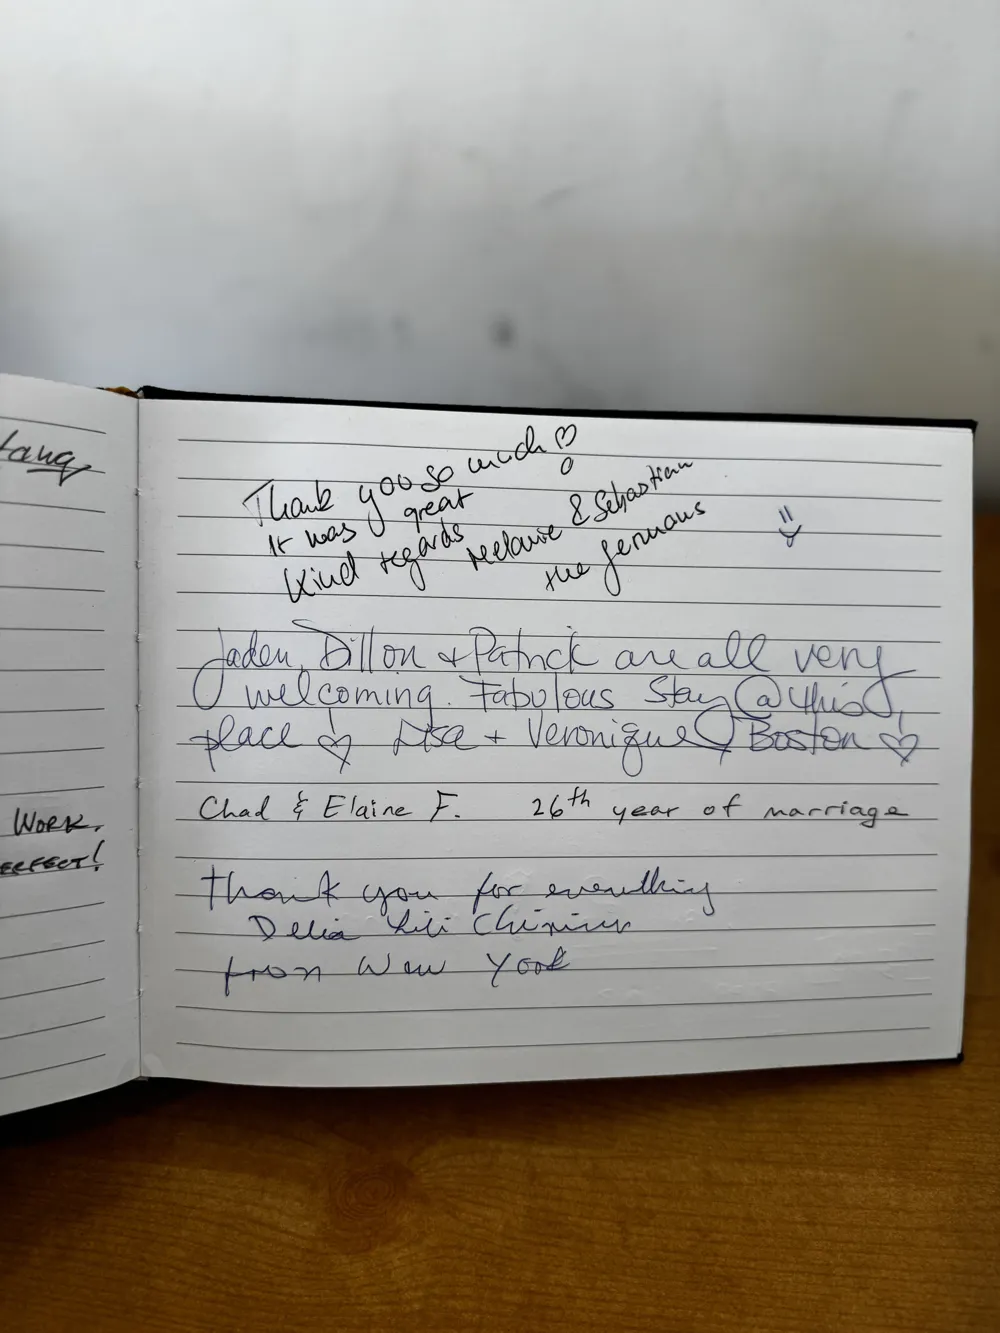 WORK.
Thank you so much
It was great
Kind regards Melanie & Sebastian
the germans
Jaden, Dillon + Patrick are all very
welcoming. Fabulous Stay @ this
place Lisa + Veronique Boston
Chad & Elaine F. 26th year of marriage
Thank you for everything
Delia Lili
from New York